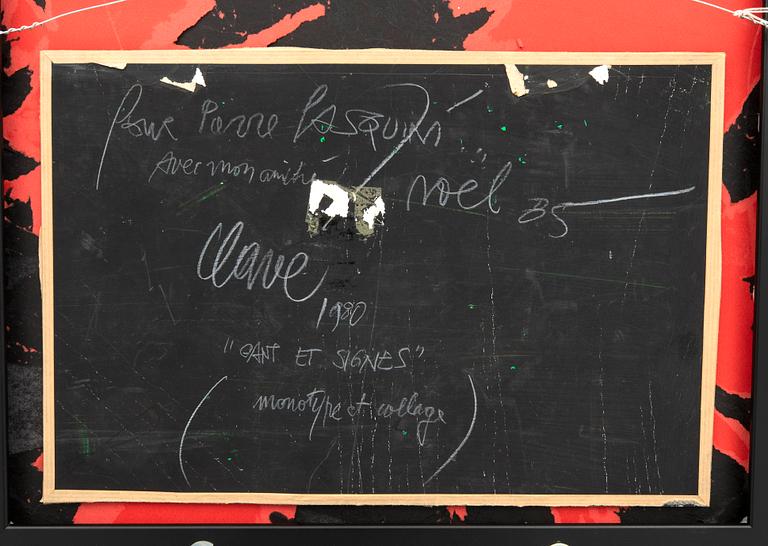 Pour Pierre PASQUINI
avec mon amitié
Noël 85
Clavé
1980
"GANT ET SIGNES"
(monotype et collage)